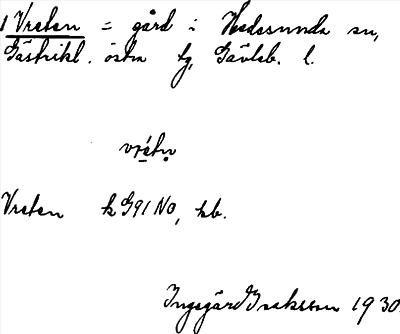 1 Vreten = gård i Hedesunda sn,
Gästrikl. östra tg, Gävleb. l.
vrétņ
Vreten k G91 NO, kb.
Ingegärd Isaksson 1930.